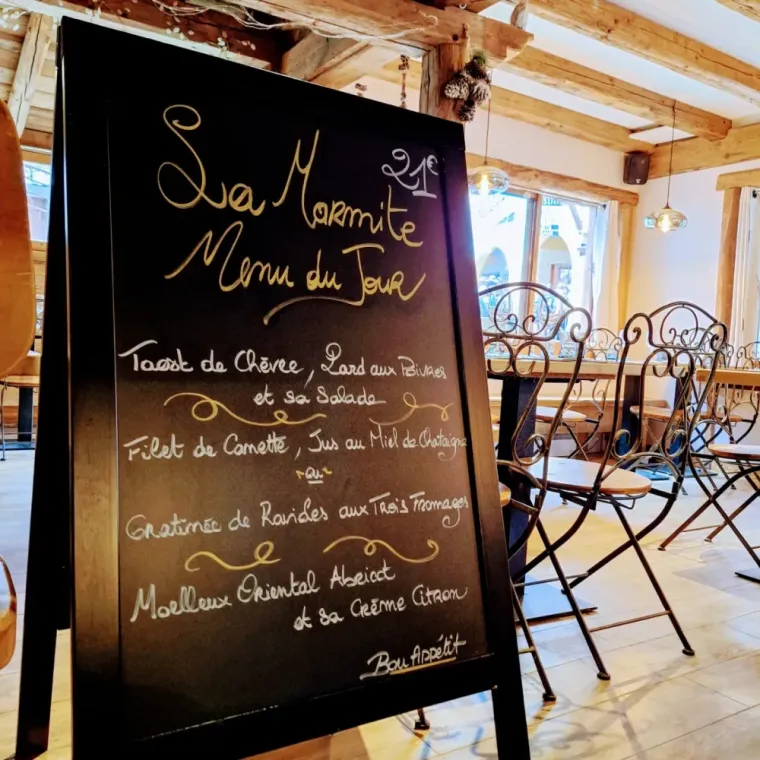 La Marmite
21€
Menu du Jour
Toast de Chèvre, Lard aux Poivres
et sa Salade
Filet de Canette, Jus au Miel de Chataigne
ou
Gratinée de Ravioles aux Trois Fromages
Moelleux Oriental Abricot
et sa Crème Citron
Bon Appétit